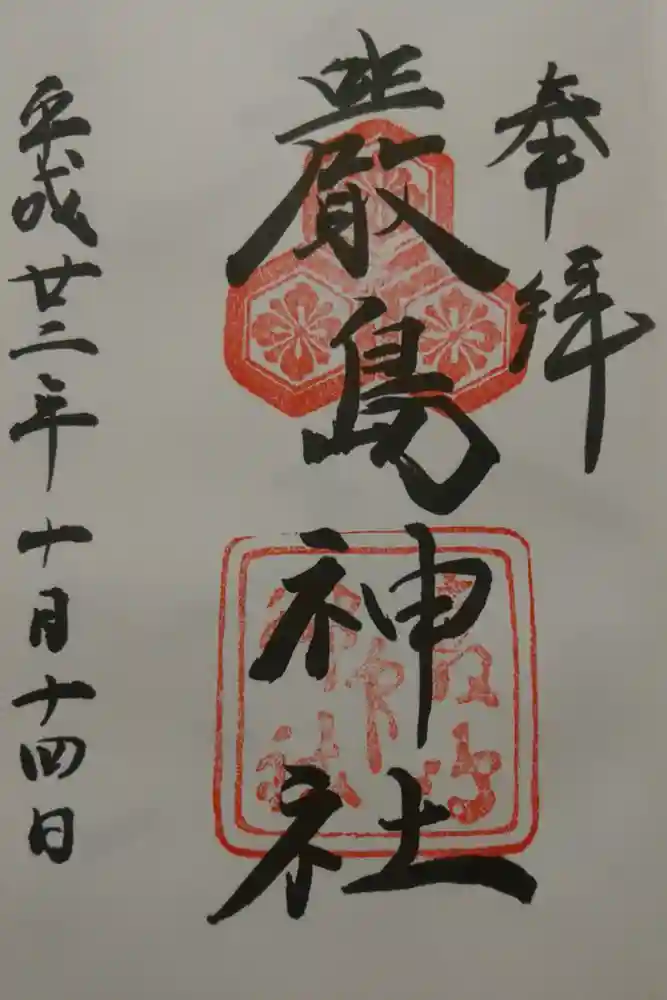 奉拝
嚴島神社
平成廿三年十月十四日